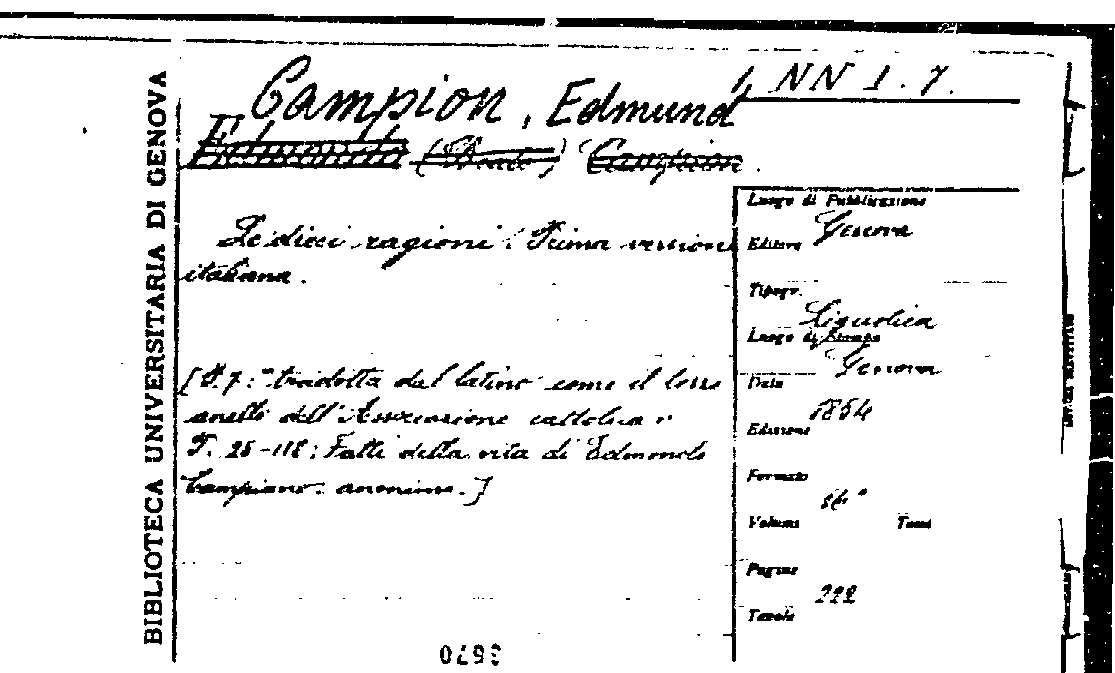 BIBLIOTECA UNIVERSITARIA DI GENOVA
Campion, Edmund
NN I. 7.
Edmondo (Beato) Campion.
Le dieci ragioni. Prima versione
italiana.
[P. 7: "tradotta dal latino come il
anello dell'Associazione cattolica"
P. 25-118: Fatti della vita di Edmondo
Campiano. anonimo.]
Luogo di Pubblicazione
Genova
Editore
Tipogr.
Ligustica
Luogo di Stampa
Genova
Data
1854
Edizione
Formato
16°
Volume Tomi
Pagine
222
Tavole